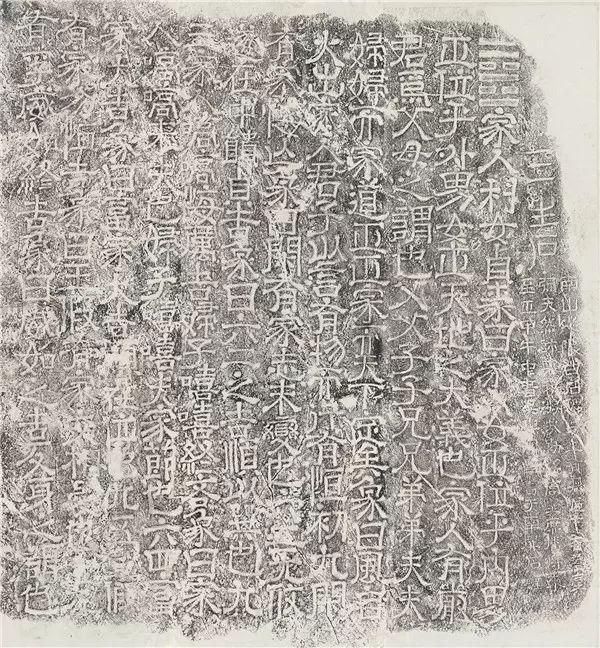 ䷤家人利女貞彖曰家人女正位乎內男
正位乎外男女正天地之大義也家人有嚴
君焉父母之謂也父父子子兄兄弟弟夫夫
婦婦而家道正正家而天下定矣象曰風自
火出家人君子以言有物而行有恒初九閑
有家悔亡象曰閑有家志未變也六二无攸
遂在中饋貞吉象曰六二之吉順以巽也九
三家人嗃嗃悔厲吉婦子嘻嘻終吝象曰家
人嗃嗃未失也婦子嘻嘻失家節也六四富
家大吉象曰富家大吉順在位也九五王假
有家勿恤吉象曰王假有家交相愛也上九
有孚威如終吉象曰威如之吉反身之謂也